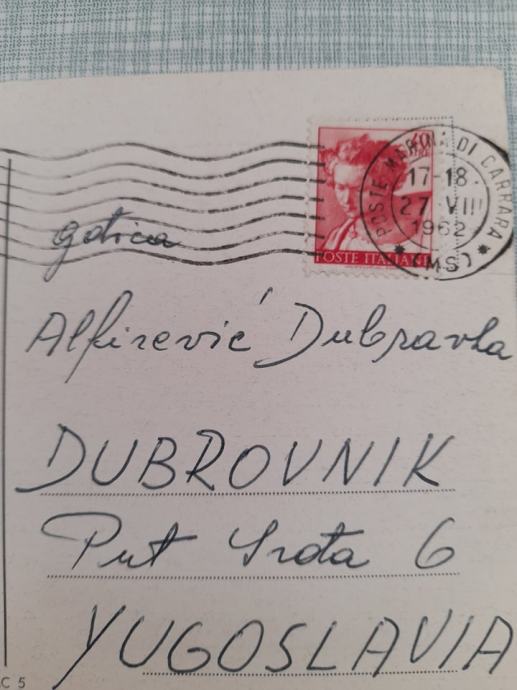 POSTE MARINA DI CARRARA
17-18.
27 VIII
1962
* (MS) *
POSTE ITALIANE
gđica
Alfirević Dubravka
DUBROVNIK
Put Srđa 6
YUGOSLAVIA
C 5